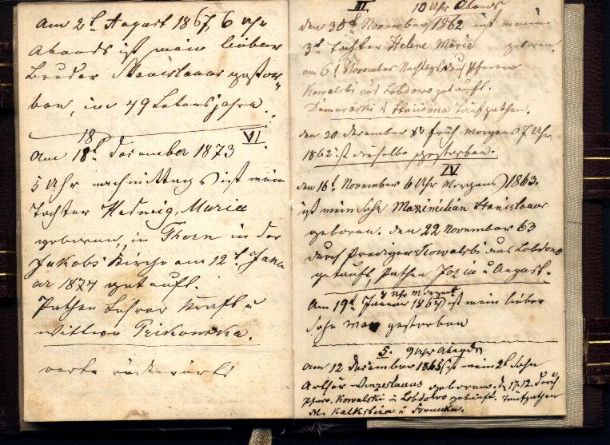 Am 2t August 1867, 6 Uhr
Abends ist mein lieber
Bruder Stanislaus gestor-
ben, im 49 Lebensjahre.
18 VI
Am 18t Dezember 1873
5 Uhr nachmittags ist mein
Tochter Hedwig, Maria
geboren, in Thorn in der
Jakobs Kirche am 12t Janu
ar 1874 getauft.
Pathen Lehrer Kraft u
Wittwe
III 10 Uhr Abends
den 30t November 1862 ist meine
3te Tochter Helene Marie geboren
am November
Kowalski aus Lobdowo getauft.
den 30 December 7 Uhr
1862 ist dieselbe gestorben.
IV
den 16t November 6 Uhr Morgens 1863.
ist mein Sohn Maximilian Stanislaus
geboren. den 22 November 63
durch Prediger Kowalski aus Lobdowo
getauft, Pathen u August.
Uhr Morgens
Am 19t Januar 1865 ist mein lieber
Sohn Max gestorben
5. 9 Uhr Abends
Am 12 Dezember 1865 ist mein 2t Sohn
Arthur Wenzeslaus geboren, d. 17.12. durch
Pfarr. Kowalski in Lobdowo getauft. Taufpathen
M. Kalkstein u